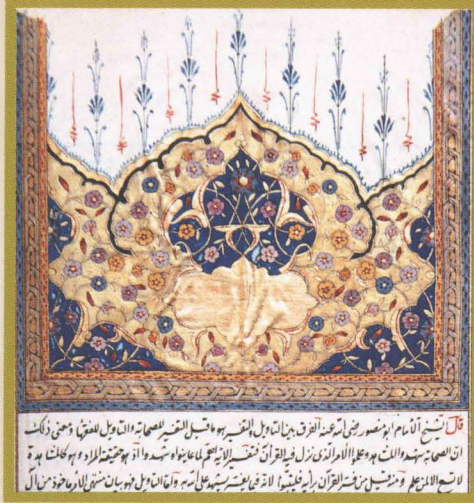 قال الشيخ الامام ابو منصور رضى الله عنه الفرق بين التاويل والتفسير هو ما قيل التفسير للصحابة والتاويل للفقهاء ومعنى ذلك
ان الصحابة شهدوا المشاهد وعلموا الامر الذى نزل فيه القرآن فتفسير الآية اهم لما عاينوا وشهدوا اذ هو حقيقة المراد وهو كالمشاهدة
لا تسمح الا لمن علم ومنه قيل من فسر القرآن برأيه فليتبوأ لانه فيما يفسر يشهد على الله به واما التاويل فهو بيان منتهى الامر مأخوذ من آل